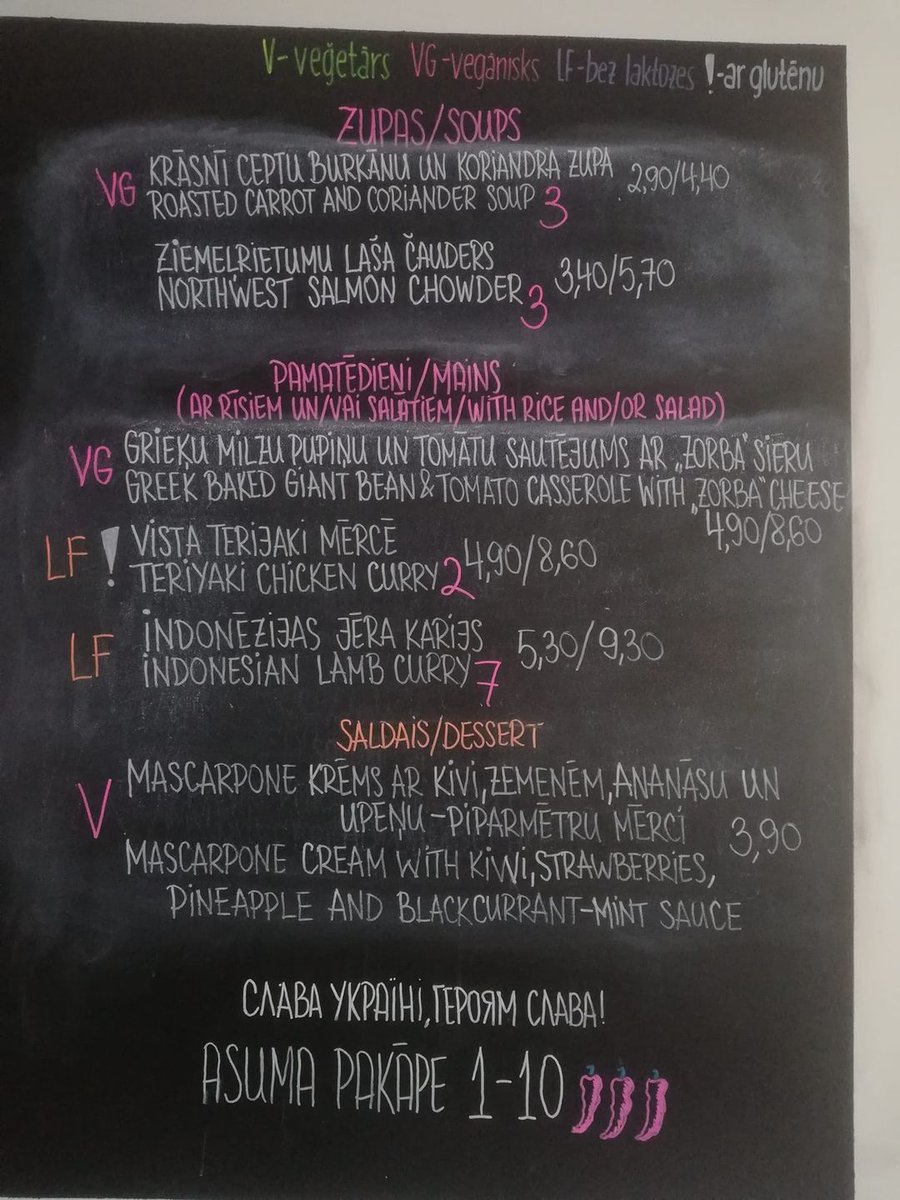 V-veģetārs VG-vegānisks LF-bez laktozes !-ar glutēnu
ZUPAS/SOUPS
VG KRĀSNĪ CEPTU BURKĀNU UN KORIANDRA ZUPA 2,90/4,40
ROASTED CARROT AND CORIANDER SOUP 3
ZIEMEĻRIETUMU LAŠA ČAUDERS 3,40/5,70
NORTHWEST SALMON CHOWDER 3
PAMATĒDIENI/MAINS
(AR RĪSIEM UN/VAI SALĀTIEM/WITH RICE AND/OR SALAD)
VG GRIEĶU MILZU PUPIŅU UN TOMĀTU SAUTĒJUMS AR „ZORBA" SIERU
GREEK BAKED GIANT BEAN & TOMATO CASSEROLE WITH „ZORBA" CHEESE
4,90/8,60
LF ! VISTA TERIJAKI MĒRCĒ 4,90/8,60
TERIYAKI CHICKEN CURRY 2
LF INDONĒZIJAS JĒRA KARIJS 5,30/9,30
INDONESIAN LAMB CURRY 7
SALDAIS/DESSERT
V MASCARPONE KRĒMS AR KIVI, ZEMENĒM, ANANĀSU UN
UPEŅU-PIPARMĒTRU MĒRCI 3,90
MASCARPONE CREAM WITH KIWI, STRAWBERRIES,
PINEAPPLE AND BLACKCURRANT-MINT SAUCE
СЛАВА УКРАЇНІ, ГЕРОЯМ СЛАВА!
ASUMA PAKĀPE 1-10